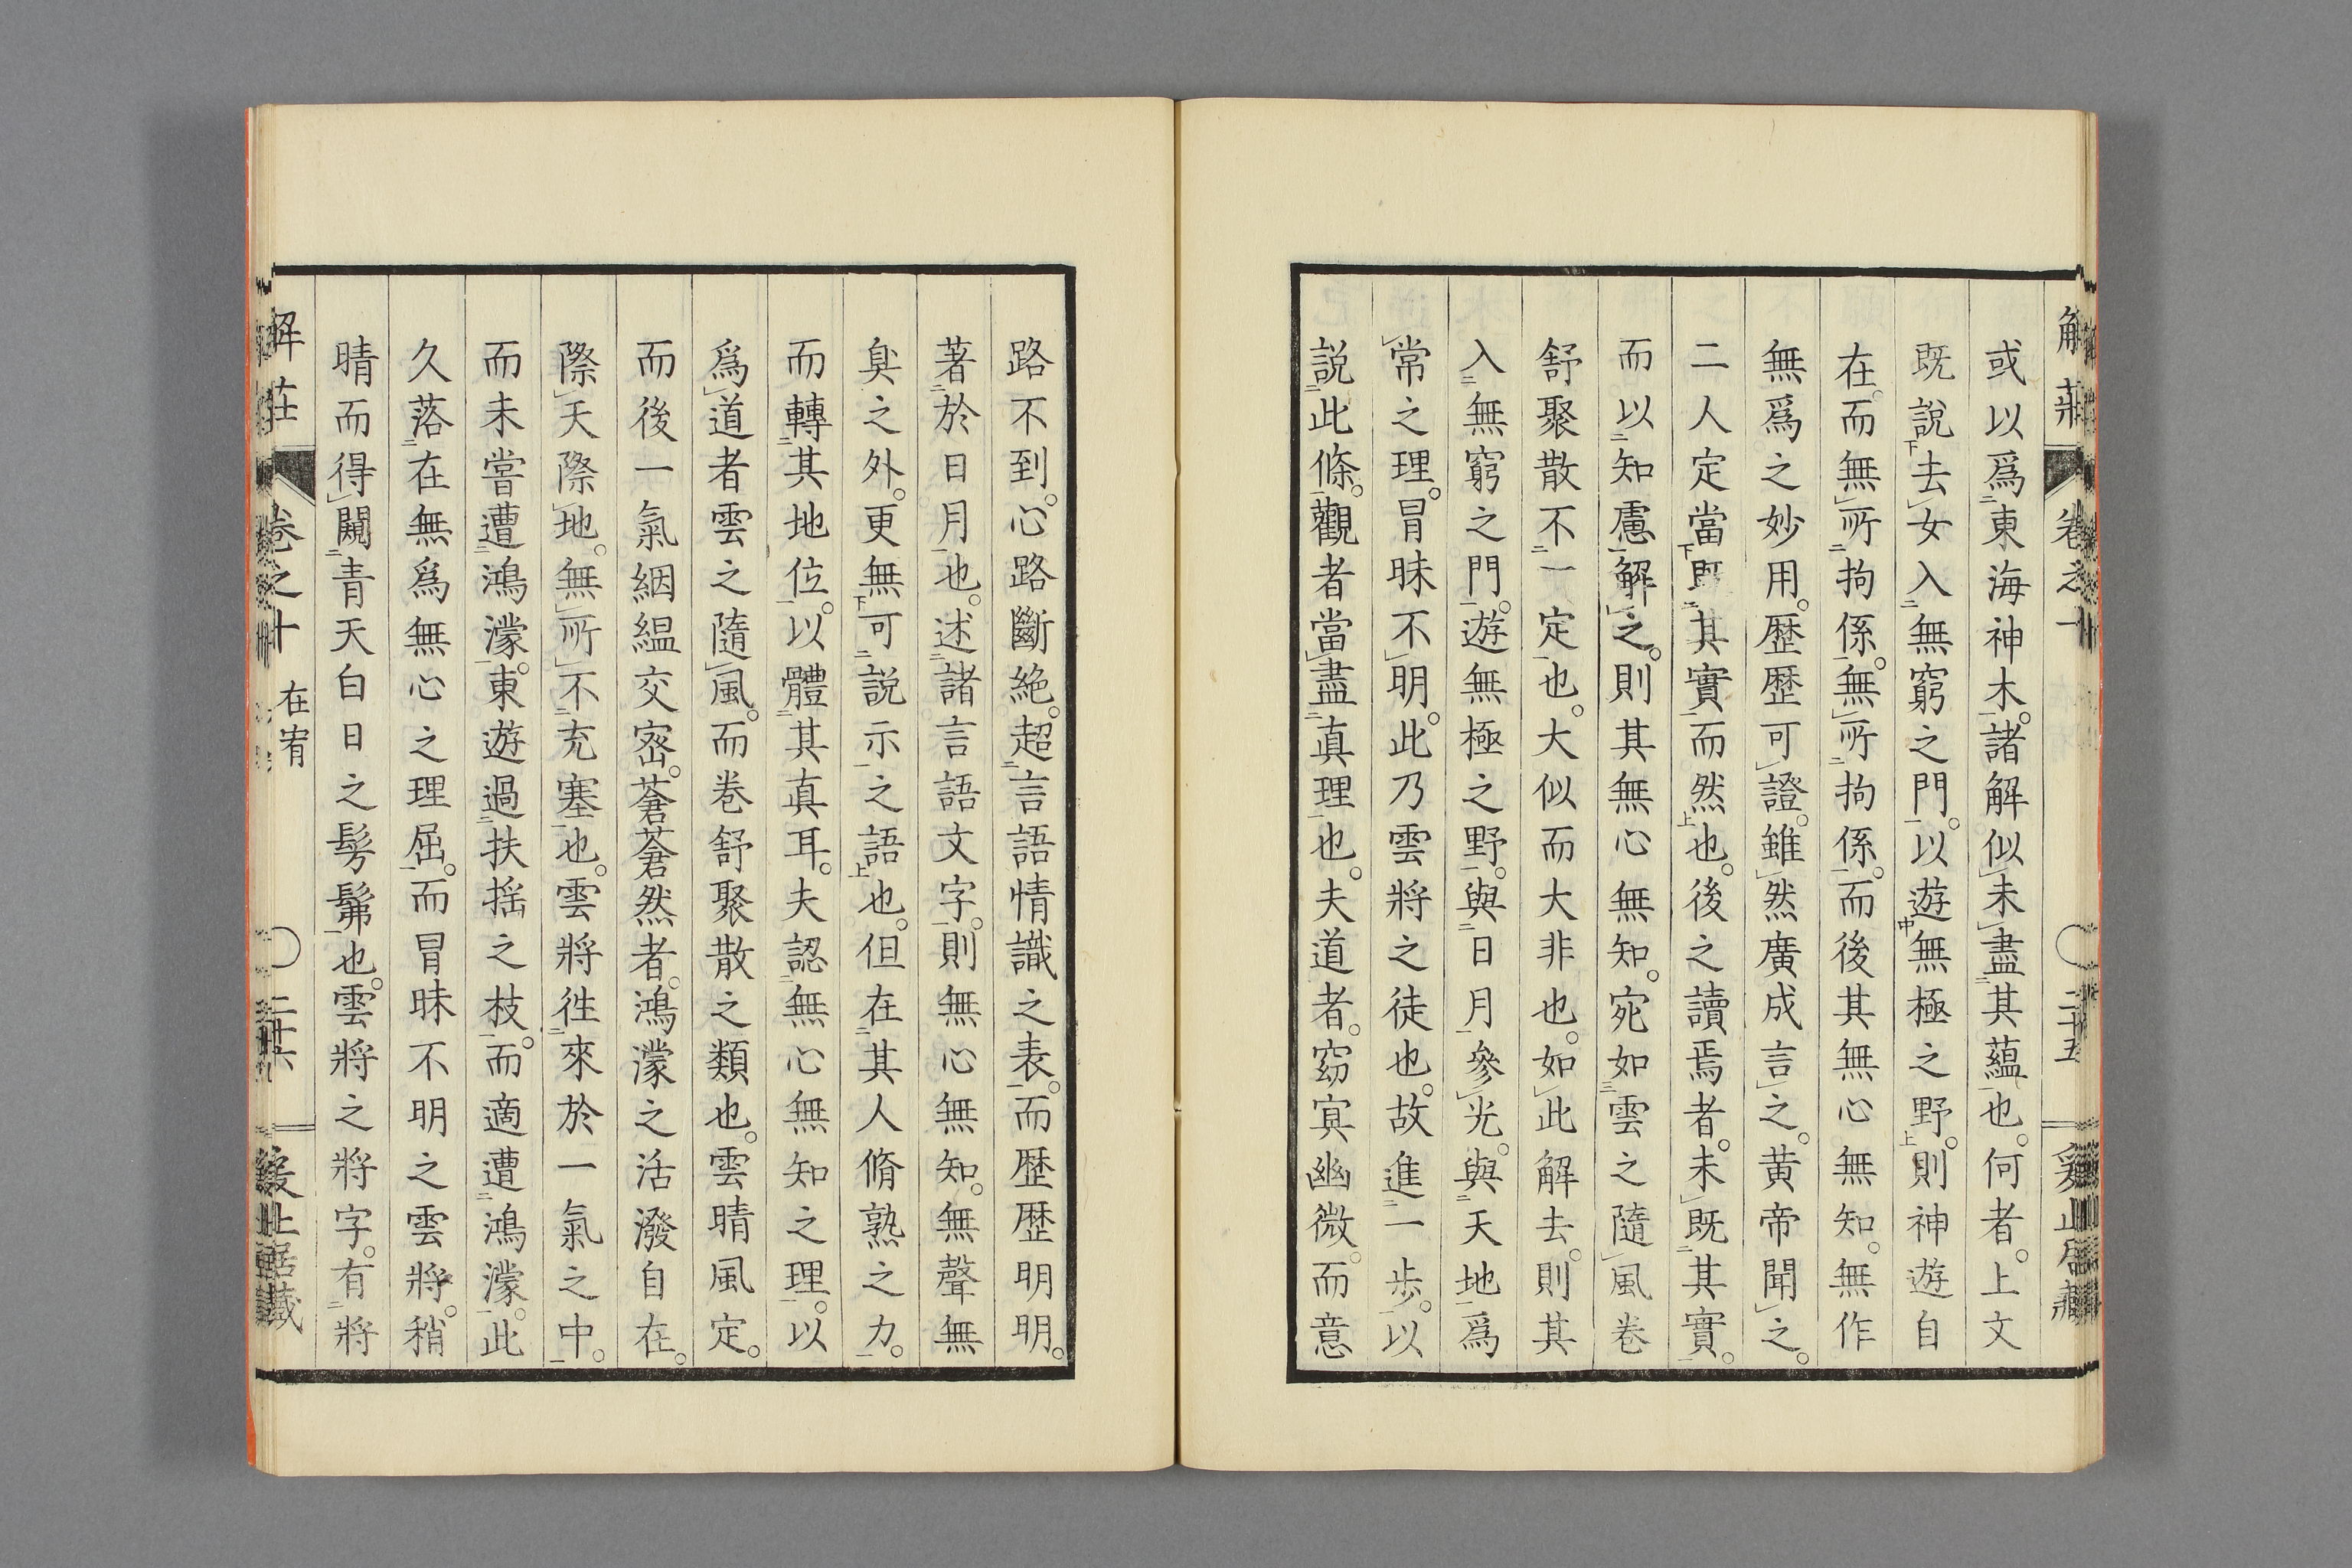 解莊 卷之十 二十五
或以爲東海神木。諸解似未盡其蘊也。何者。上文
既說去女入無窮之門。以遊無極之野。則神遊自
在。而無所拘係。無所拘係。而後其無心無知。無作
無爲之妙用。歷歷可證。雖然廣成言之。黃帝聞之。
二人定當既其實而然也。後之讀焉者。未既其實。
而以知慮解之。則其無心無知。宛如雲之隨風卷
舒聚散不一定也。大似而大非也。如此解去。則其
入無窮之門。遊無極之野。與日月參光。與天地爲
常之理。冒昧不明。此乃雲將之徒也。故進一步。以
説此條。觀者當盡眞理也。夫道者。窈冥幽微。而意
路不到。心路斷絶。超言語情識之表。而歷歷明明。
著於日月也。述諸言語文字。則無心無知。無聲無
臭之外。更無可説示之語也。但在其人脩熟之力。
而轉其地位。以體其眞耳。夫認無心無知之理。以
爲道者雲之隨風。而卷舒聚散之類也。雲晴風定。
而後一氣絪縕交密。蒼蒼然者。鴻濛之活潑自在。
際天際地。無所不充塞也。雲將徃來於一氣之中。
而未嘗遭鴻濛。東遊過扶搖之枝。而適遭鴻濛。此
久落在無爲無心之理屈。而冒昧不明之雲將。稍
晴而得闚青天白日之髣髴也。雲將之將字。有將
解莊 卷之十 在宥 二十六